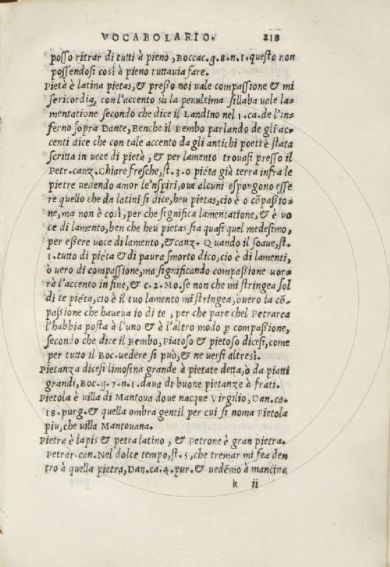 VOCABOLARIO. 218
posso ritrar di tutti à pieno, Boccac. g. 8. n. 1. questo non
possendosi così à pieno tuttauia fare.
Pietà è latina pietas, & presso noi uale compassione & mi
sericordia, con l'accento sù la penultima sillaba uale la-
mentatione secondo che dice il Landino nel 1. ca. de l'in-
ferno sopra Dante, Benche il Bembo parlando de gli ac-
centi dice che con tale accento da gli antichi poeti è stata
scritta in uece di pietà, & per lamento trouasi presso il
Petr. canz. Chiare fresche, st. 3. o pièta già terra infra le
pietre uedendo amor le'nspiri, oue alcuni espongono esse
re quello che da latini si dice, heu pietas, cio è o cōpassio-
ne, ma non è così, per che significa lamentatione, & è uo
ce di lamento, ben che heu pietas sia quasi quel medesimo,
per essere uoce di lamento, & canz. Quando il soaue, st.
1. tutto di pièta & di paura smorto dico, cio è di lamenti,
ò uero di compassione, ma significando compassione uor-
rà l'accento in fine, & c. 2. Mo. se non che mi stringea sol
di te pièta, cio è il tuo lamento mi stringea, ouero la cō-
passione che haueua io di te, per che pare chel Petrarca
l'habbia posta à l'uno & à l'altro modo p compassione,
secondo che dice il Bembo, Piatoso & pietoso dicesi, come
per tutto il Boc. uedere si può, & ne uersi altresi.
Pietanza dicesi limosina grande à pietate detta, ò da piatti
grandi, Boc. g. 7. n. 1. daua di buone pietanze à frati.
Pietola è uilla di Mantoua doue nacque Virgilio, Dan. ca.
18. purg. & quella ombra gentil per cui si noma Pietola
piu, che uilla Mantouana.
Pietra è lapis & petra latino, & Petrone è gran pietra.
Petrar. can. Nel dolce tempo, st. 5, che tremar mi fea den
tro à quella pietra, Dan. ca. 4. pur. & uedēmo à mancina
k ii